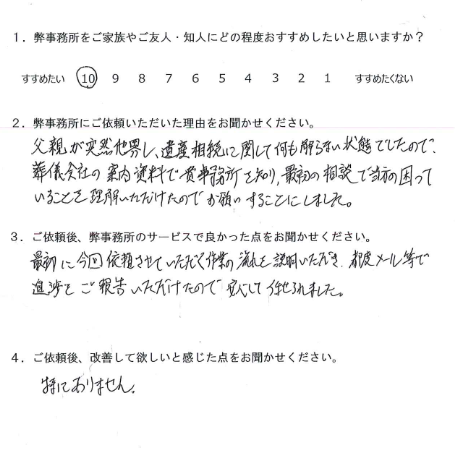 1．弊事務所をご家族やご友人・知人にどの程度おすすめしたいと思いますか？
すすめたい 10 9 8 7 6 5 4 3 2 1 すすめたくない
2．弊事務所にご依頼いただいた理由をお聞かせください。
父親が突然他界し、遺産相続に関して何も解らない状態でしたので、
葬儀会社の案内資料で貴事務所を知り、最初の相談で当方の困って
いることを理解いただけたのでお願いすることにしました。
3．ご依頼後、弊事務所のサービスで良かった点をお聞かせください。
最初に今回依頼させていただく作業の流れを説明いただき、都度メール等で
進捗をご報告いただけたので安心して任せられました。
4．ご依頼後、改善して欲しいと感じた点をお聞かせください。
特にありません。